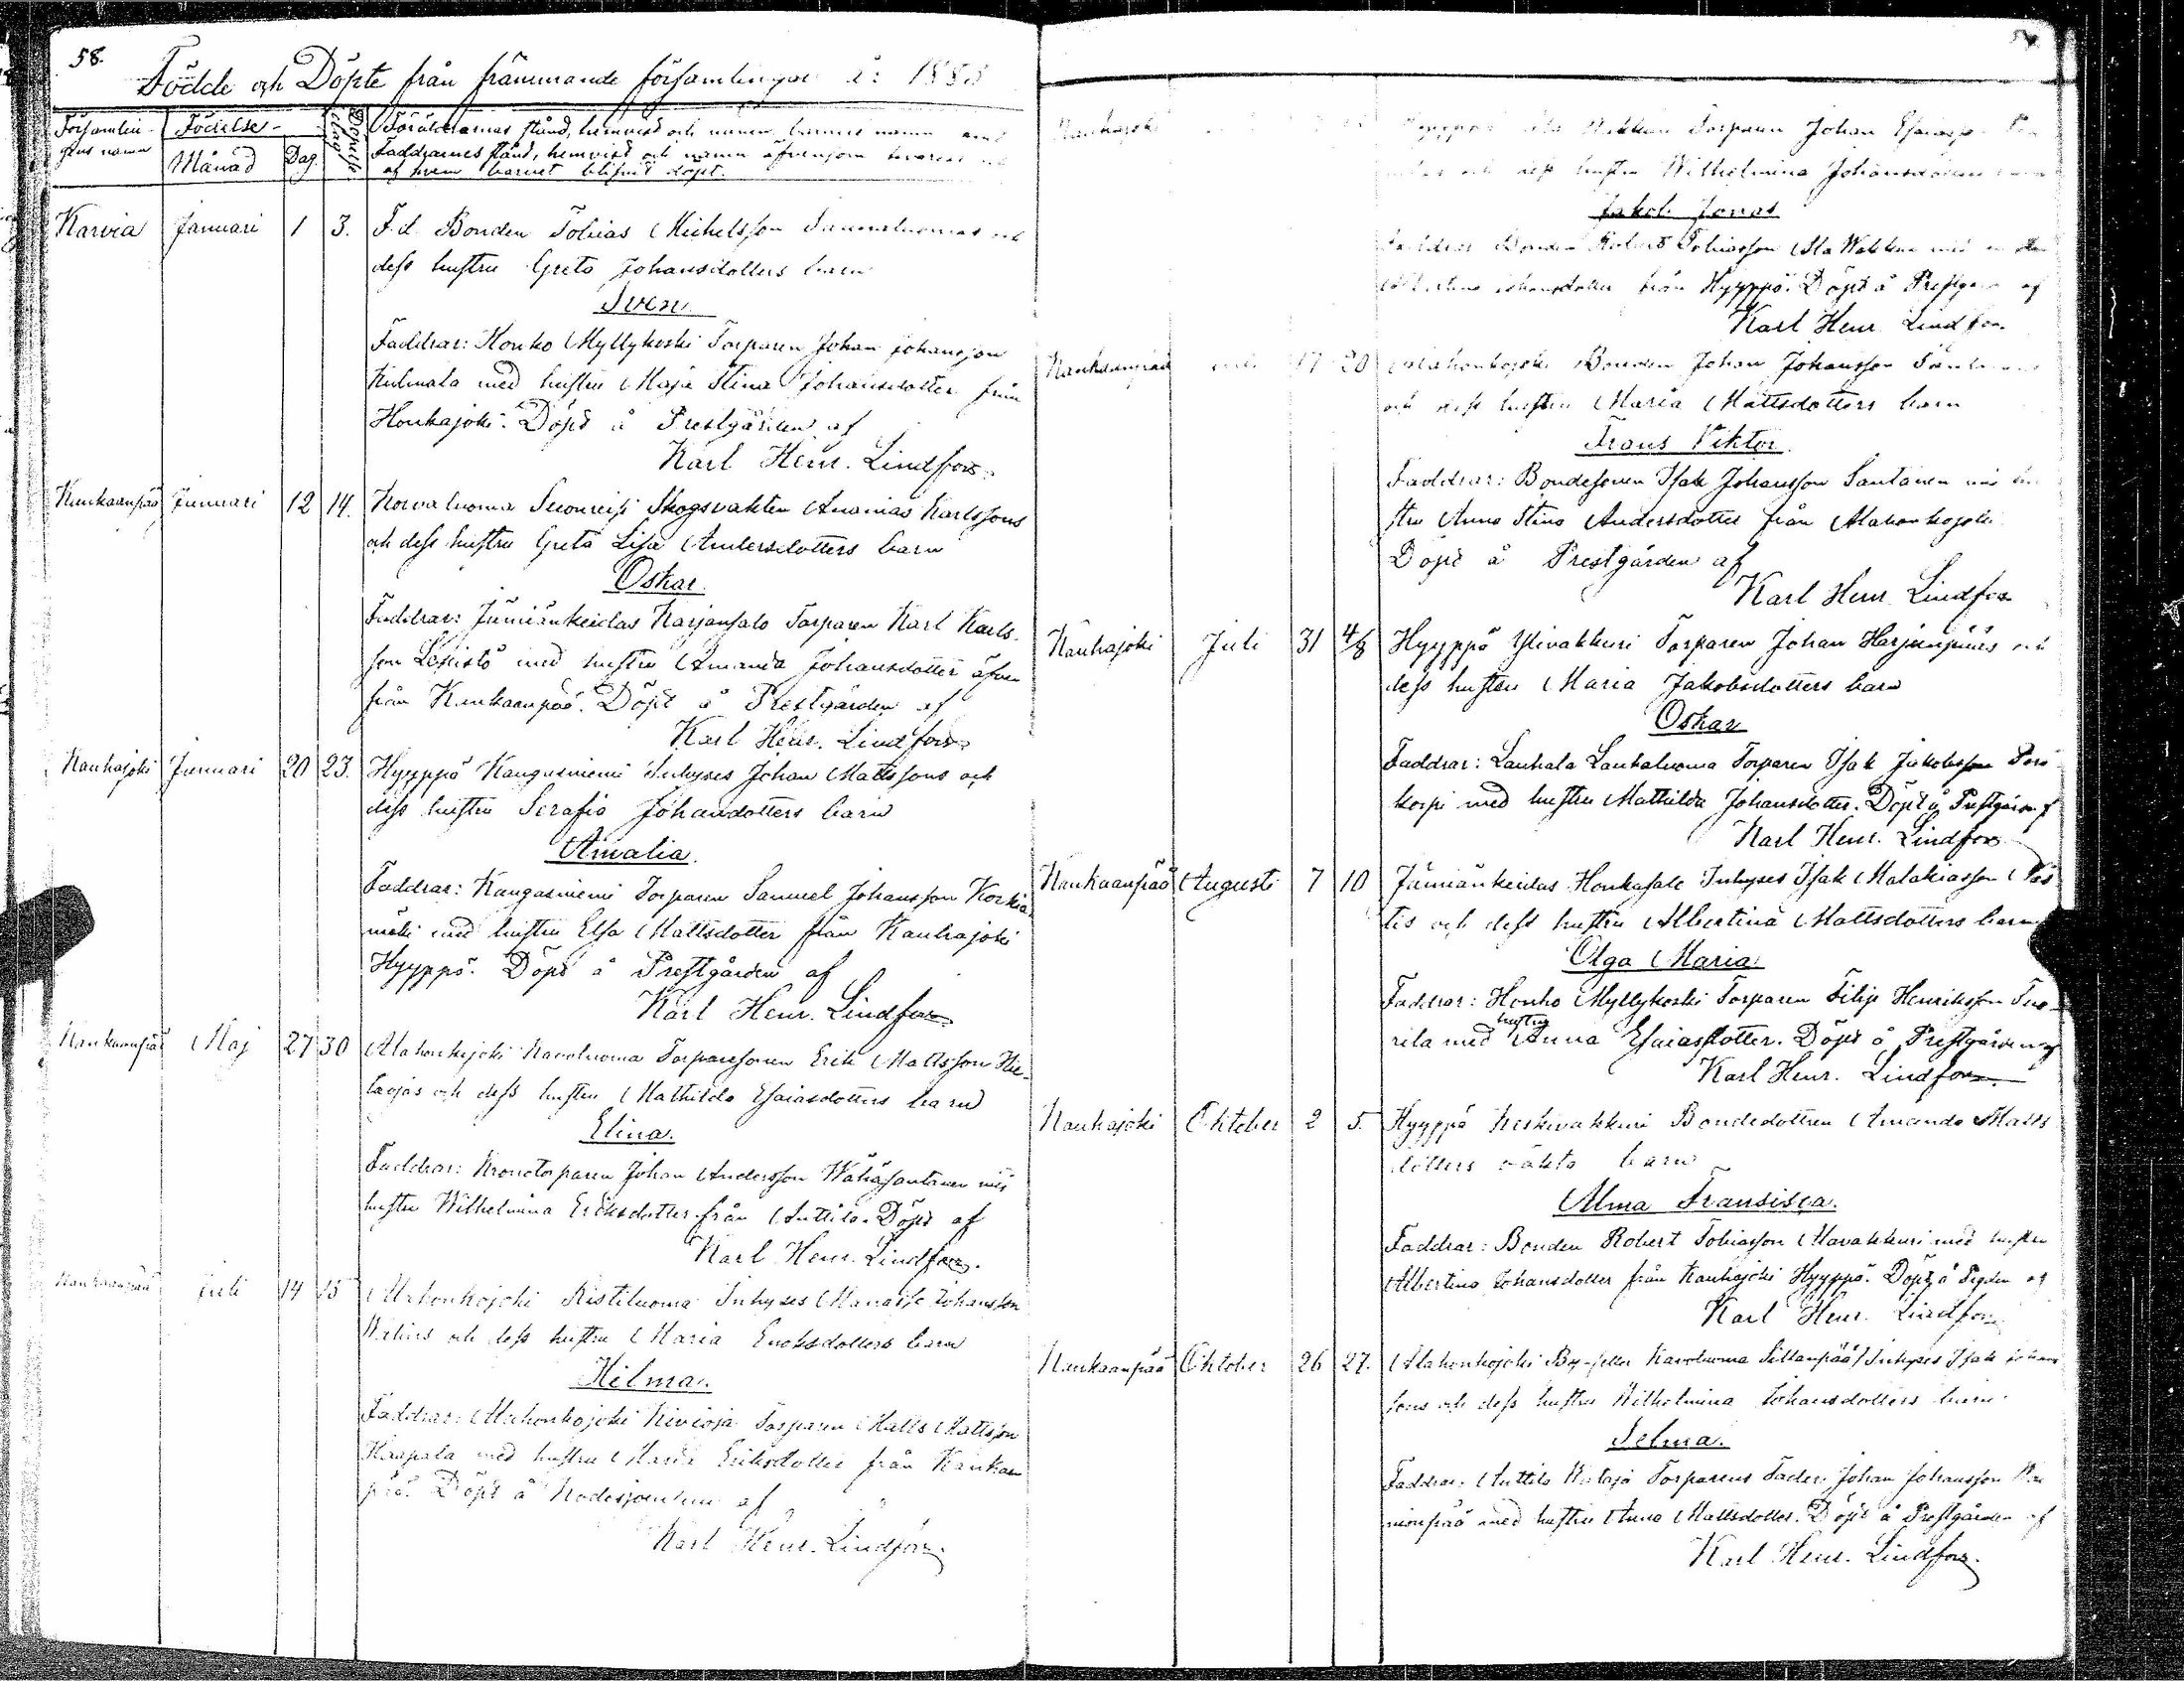 58.
Födde och Döpte från främmande församlingar år 188
Församlin- Födelse- Dopets dag Föräldrarnes stånd, hemvist och namn, barnets namn samt
gens namn Månad Dag. Faddrarnes stånd, hemvist och namn äfvensom
af hvem barnet blifvit döpt.
Karvia Januari 1 3. F.d. Bonden Tobias Michelsson och
dess hustru Greta Johansdotters barn
Sven.
Faddrar: Honko Myllykoski Torparen Johan Johansson
Kulmala med hustru Maja Stina Johansdotter från
Honkajoki. Döpt å Prestgården af
Karl Henr. Lindfors.
Kankaanpää Januari 12 14. Korvaluoma Skogsvakten Ananias Karlssons
och dess hustru Greta Lisa Andersdotters barn
Oskar.
Faddrar: Jämiänkeidas Karjansalo Torparen Karl Karls-
son Lepistö med hustru Amanda Johansdotter äfven
från Kankaanpää. Döpt å Prestgården af
Karl Henr. Lindfors.
Kauhajoki Januari 20 23. Hyyppä Kangasniemi Inhyses Johan Mattssons och
dess hustru Serafia Johansdotters barn
Amalia.
Faddrar: Kangasniemi Torparen Samuel Johansson Korkia-
mäki med hustru Elsa Mattsdotter från Kauhajoki
Hyyppä. Döpt å Prestgården af
Karl Henr. Lindfors.
Kankaanpää Maj 27 30 Alahonkajoki Torparesonen Erik Mattsson Hie-
taojas och dess hustru Mathilda Esaiasdotters barn
Elina.
Faddrar: Kronotorparen Johan Andersson Wähäsantanen med
hustru Wilhelmina Eriksdotter från Anttila. Döpt af
Karl Henr. Lindfors.
Kankaanpää Juli 14 15 Alahonkajoki Ristiluoma Inhyses Manasse Johansson
och dess hustru Maria Enoksdotters barn
Hilma.
Faddrar: Alahonkajoki Kivioja Torparen Matts Mattsson
Haapala med hustru Maria Eriksdotter från Kankaan-
pää. Döpt å af
Karl Henr. Lindfors.
Kauhajoki Hyyppä Torparen Johan
och dess hustru Wilhelmina Johansdotters
Jakob Jonas
Faddrar Bonden Robert Tobiasson
Albertina Johansdotter från Hyyppä. Döpt å Prestgården af
Karl Henr. Lindfors.
Kankaanpää Juli 17 20 Alahonkajoki Bonden Johan Johansson
och dess hustru Maria Mattsdotters barn
Frans Viktor.
Faddrar: Bondesonen Isak Johansson Santanen med hu-
stru Anna Stina Andersdotter från Alahonkajoki
Döpt å Prestgården af
Karl Henr. Lindfors
Kauhajoki Juli 31 4/8 Hyyppä Ylivakkuri Torparen Johan Harjunpääs och
dess hustru Maria Jakobsdotters barn
Oskar
Faddrar: Lauhala Lauhaluoma Torparen Isak Jakobsson
korpi med hustru Mathilda Johansdotter. Döpt å Prestgården af
Karl Henr. Lindfors
Kankaanpää Augusti 7 10 Jämiänkeidas Honkasalo Inhyses Isak Malakiasson
tis och dess hustru Albertina Mattsdotters barn
Olga Maria.
Faddrar: Honko Myllykoski Torparen Filip Henriksson Tuo-
rila med hustru Anna Esaiasdotter. Döpt å Prestgården af
Karl Henr. Lindfors.
Kauhajoki Oktober 2 5. Hyyppä Keskivakkuri Bondedottren Amanda Matts
dotters oäkta barn
Alma Fransisca.
Faddrar: Bonden Robert Tobiasson Alavakkuri med hustru
Albertina Johansdotter från Kauhajoki Hyyppä. Döpt å Pgden af
Karl Henr. Lindfors
Kankaanpää Oktober 26 27. Alahonkajoki By (eller Karoluoma Sillanpää) Inhyses Isak Johans-
sons och dess hustru Wilhelmina Johansdotters barn
Selma.
Faddrar: Anttila Kataja Torparens Fader Johan Johansson
med hustru Anna Mattsdotter. Döpt å Prestgården af
Karl Henr. Lindfors.